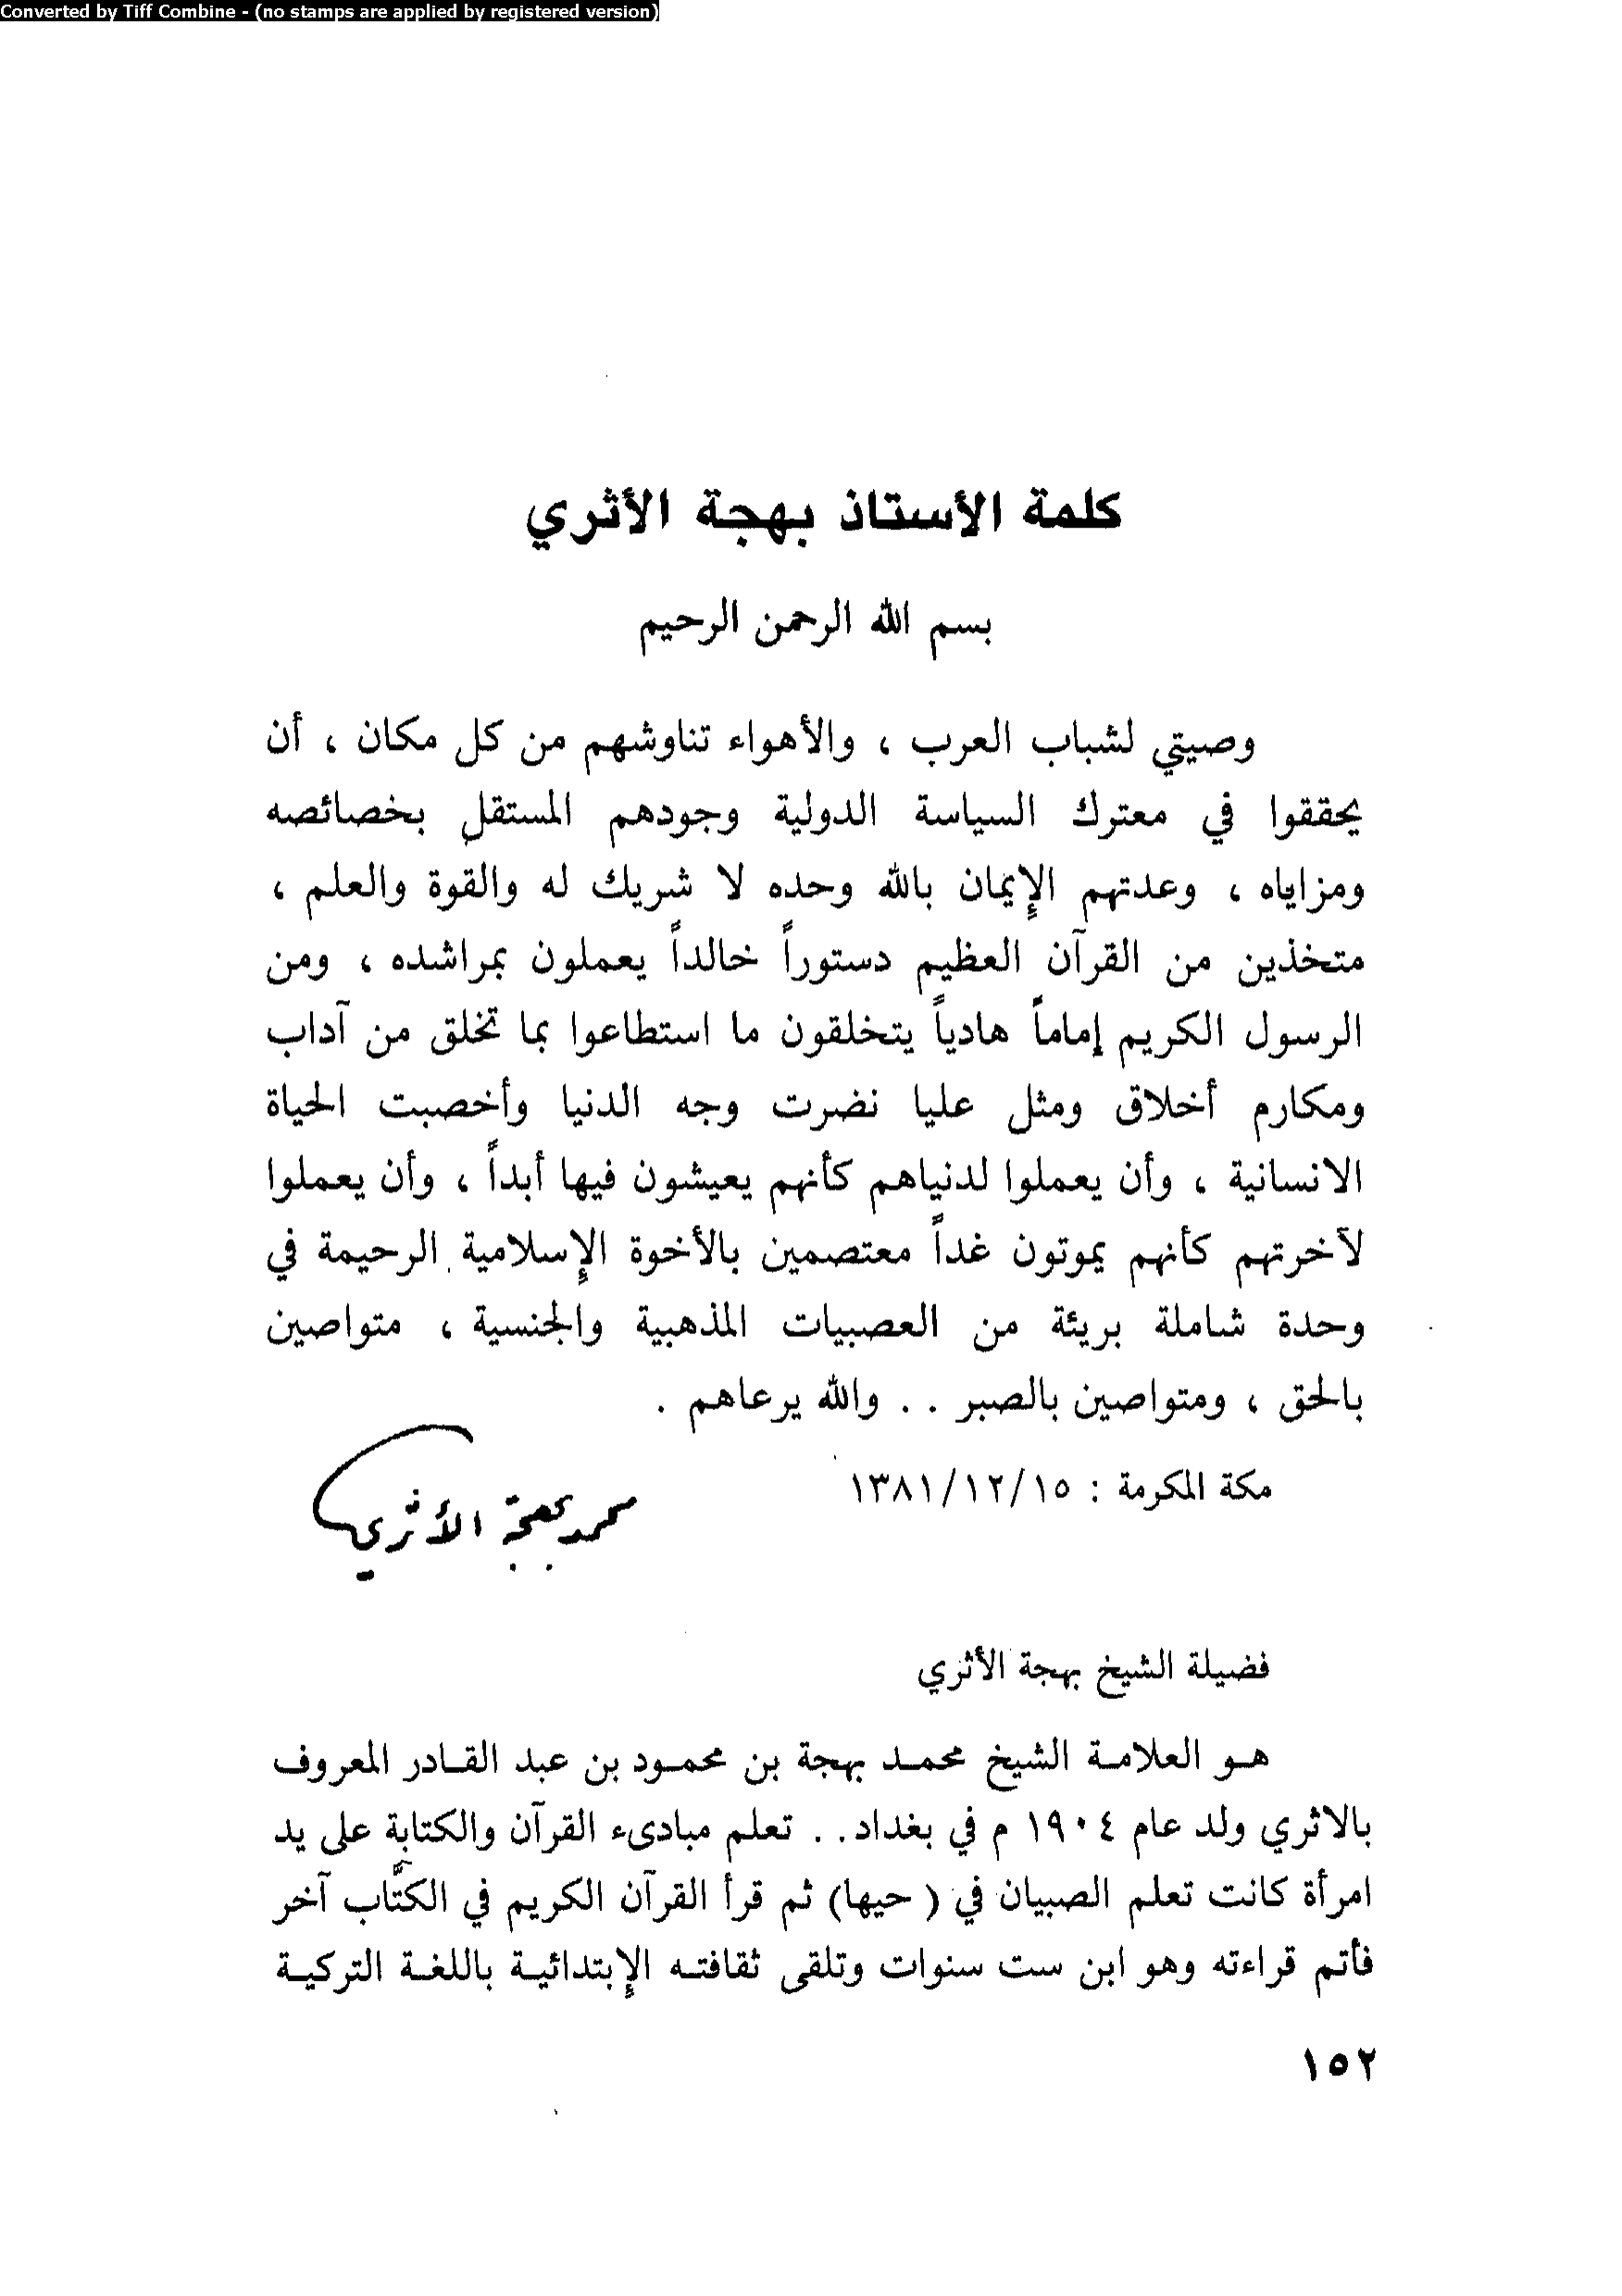 Converted by Tiff Combine - (no stamps are applied by registered version)
كلمة الأستاذ بهجة الأثري
بسم الله الرحمن الرحيم
وصيتي لشباب العرب ، والأهواء تناوشهم من كل مكان ، أن
يحققوا في معترك السياسة الدولية وجودهم المستقل بخصائصه
ومزاياه ، وعدتهم الإيمان بالله وحده لا شريك له والقوة والعلم ،
متخذين من القرآن العظيم دستوراً خالداً يعملون بمراشده ، ومن
الرسول الكريم إماماً هادياً يتخلقون ما استطاعوا بما تخلق من آداب
ومكارم أخلاق ومثل عليا نضرت وجه الدنيا وأخصبت الحياة
الانسانية ، وأن يعملوا لدنياهم كأنهم يعيشون فيها أبداً ، وأن يعملوا
لآخرتهم كأنهم يموتون غداً معتصمين بالأخوة الإسلامية الرحيمة في
وحدة شاملة بريئة من العصبيات المذهبية والجنسية ، متواصين
بالحق ، ومتواصين بالصبر . . والله يرعاهم .
مكة المكرمة : ١٣٨١/١٢/١٥
محمد بهجة الأثري
فضيلة الشيخ بهجة الأثري
هـو العلامـة الشيخ محمـد بهجة بن محمـود بن عبد القـادر المعروف
بالاثري ولد عام ١٩٠٤ م في بغداد . . تعلم مبادىء القرآن والكتابة على يد
امرأة كانت تعلم الصبيان في ( حيها) ثم قرأ القرآن الكريم في الكتَّاب آخر
فأتم قراءته وهو ابن ست سنوات وتلقى ثقافتـه الإبتدائيـة باللغـة التركيـة
١٥٢